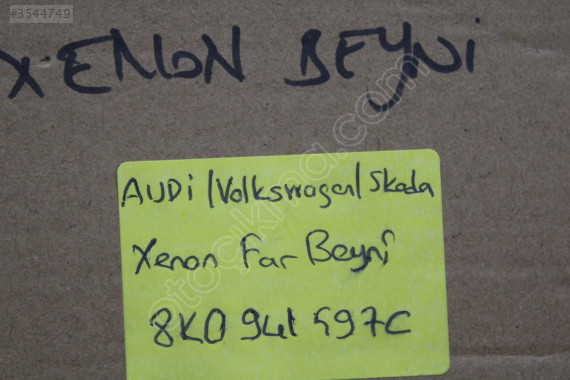 #3544749
XENON BEYNİ
AUDİ/Volkswagen/Skoda
Xenon Far Beyni
8K0 941 597C
otocikma.com